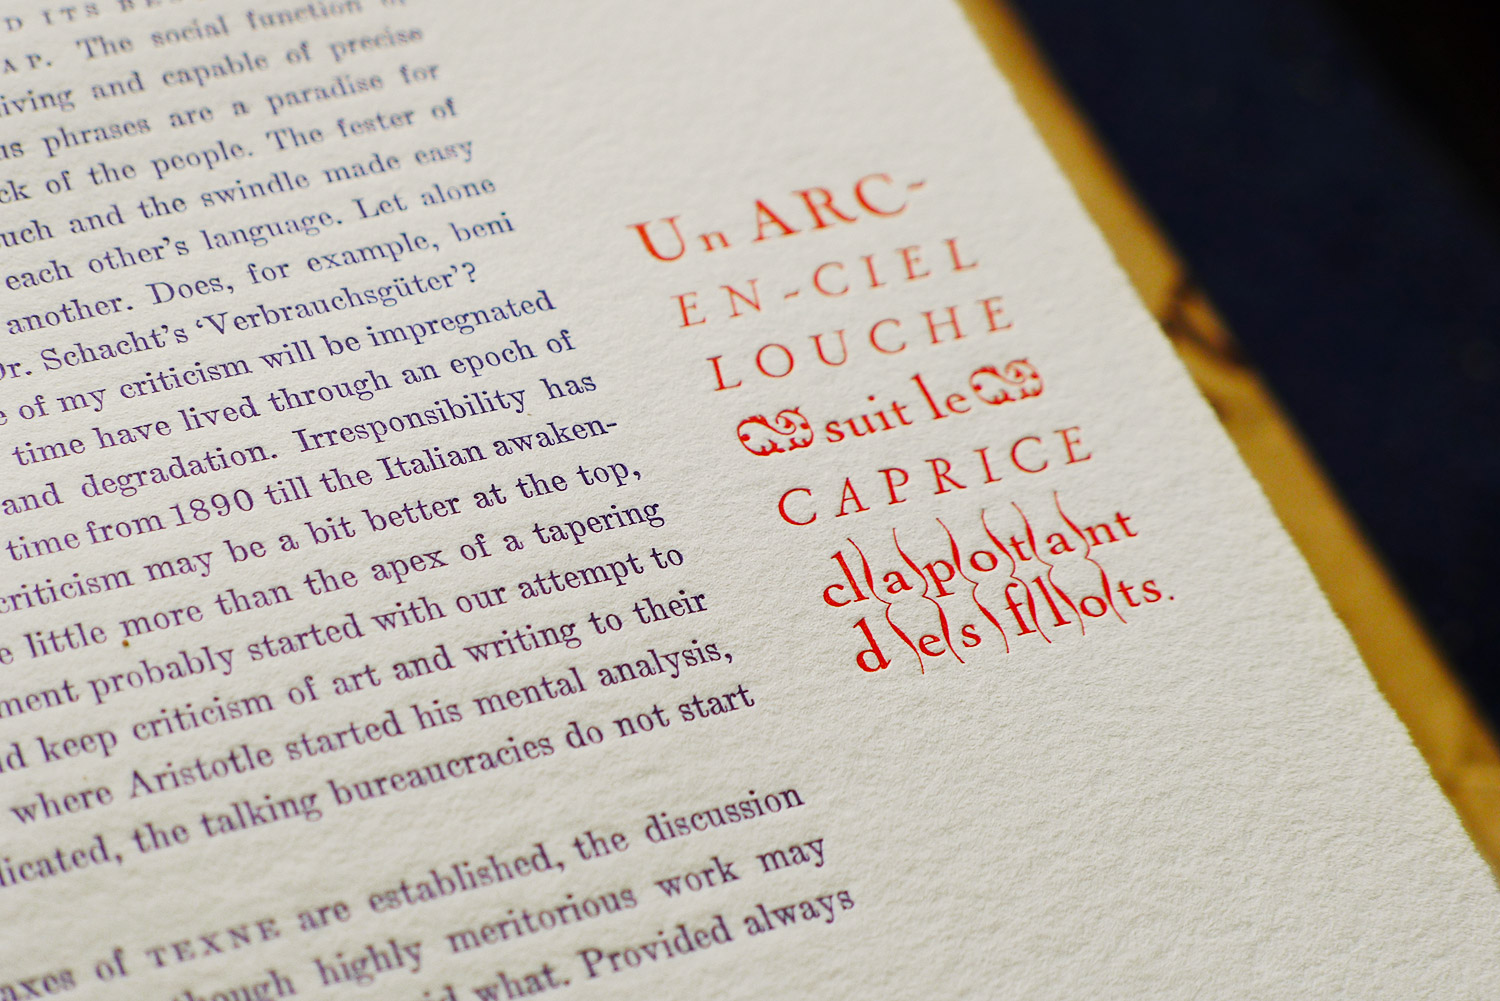 D ITS
AP. The social function
iving and capable of precise
us phrases are a paradise for
ck of the people. The fester of
uch and the swindle made easy
each other's language. Let alone
another. Does, for example, beni
Dr. Schacht's ‘Verbrauchsgüter’?
e of my criticism will be impregnated
time have lived through an epoch of
and degradation. Irresponsibility has
time from 1890 till the Italian awaken-
criticism may be a bit better at the top,
e little more than the apex of a tapering
ment probably started with our attempt to
d keep criticism of art and writing to their
where Aristotle started his mental analysis,
licated, the talking bureaucracies do not start
axes of TEXNE are established, the discussion
though highly meritorious work may
what. Provided always
Un ARC-
EN-CIEL
LOUCHE
suit le
CAPRICE
cl(a)p(o)t(a)nt
d)e(s)f(l)o(ts.